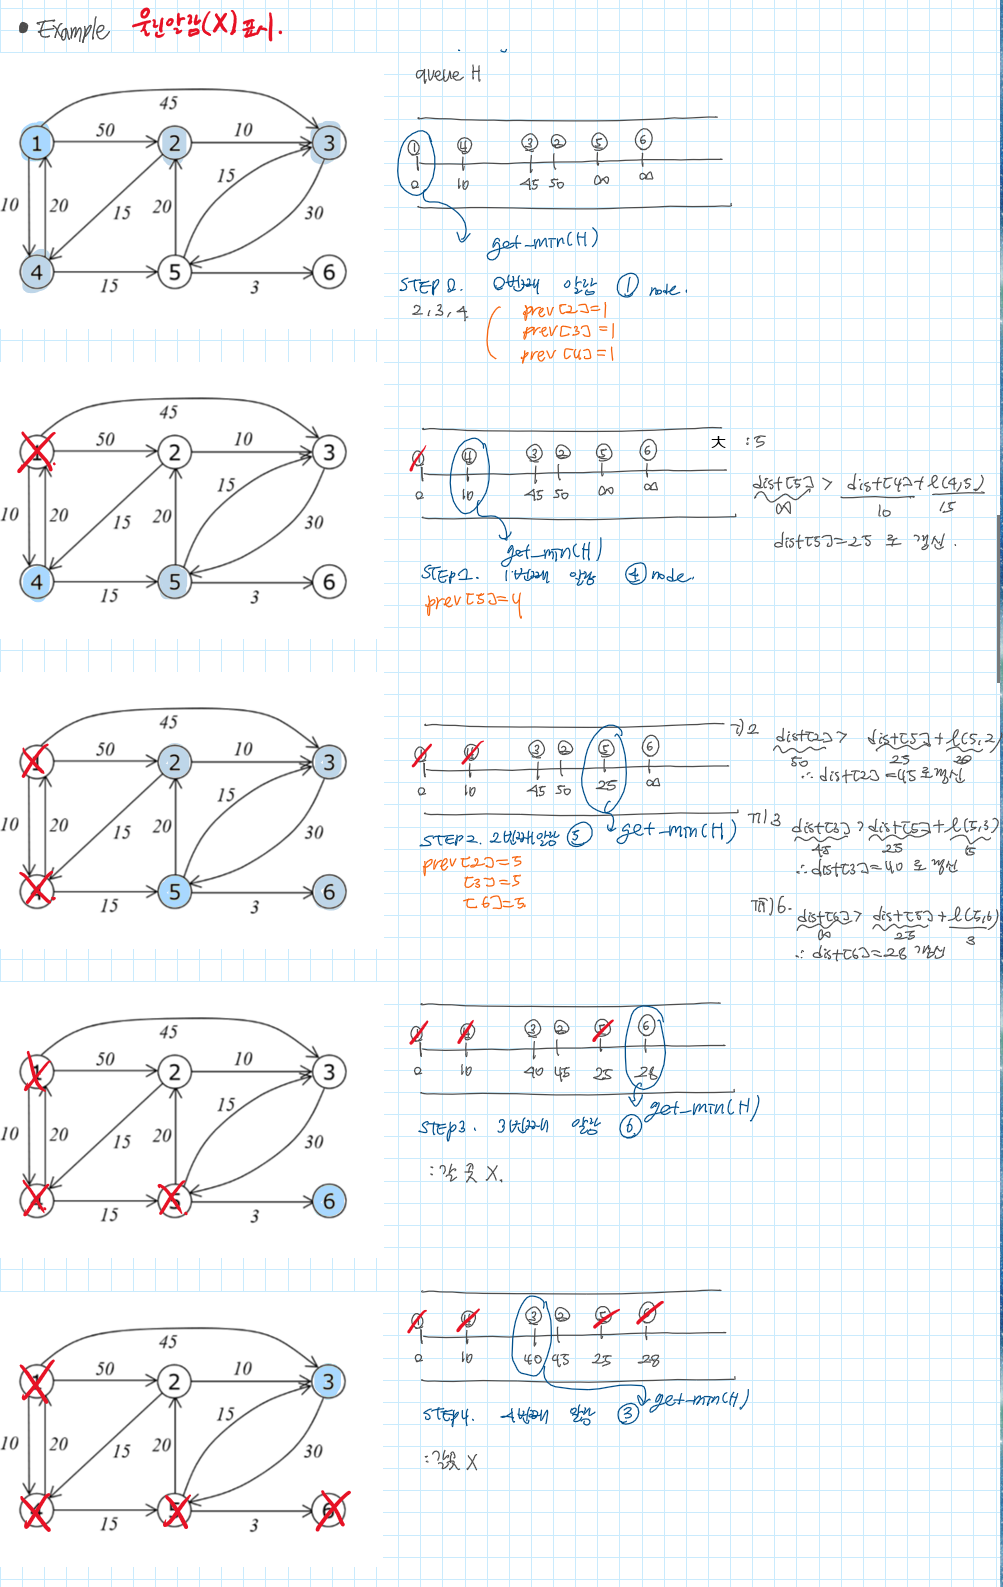 • Example 울린알람(X) 표시.
queue H
45
50
10
1
2
3
15
10
20
15
20
30
4
5
6
15
3
① ④ ③ ② ⑤ ⑥
0 10 45 50 ∞ ∞
get_min(H)
STEP 0. 0번째 알람 ① node.
2, 3, 4
prev[2]=1
prev[3]=1
prev[4]=1
45
50
10
2
3
15
10
20
15
20
30
4
5
6
15
3
④ ③ ② ⑤ ⑥
0 10 45 50 ∞ ∞
get_min(H)
STEP1. 1번째 알람 ④ node.
prev[5]=4
:5
dist[5] > dist[4]+l(4,5)
∞ 10 15
dist[5]=25 로 갱신.
45
50
10
2
3
15
10
20
15
20
30
5
6
15
3
③ ② ⑤ ⑥
0 10 45 50 25 ∞
get_min(H)
STEP2. 2번째알람 ⑤
prev[2]=5
[3]=5
[6]=5
i)2 dist[2] > dist[5]+l(5,2)
50 25 20
∴ dist[2]=45로갱신
ii)3 dist[3] > dist[5]+l(5,3)
45 25 15
∴ dist[3]=40 로 갱신
iii)6. dist[6] > dist[5]+l(5,6)
∞ 25 3
∴ dist[6]=28 갱신
45
50
10
2
3
15
10
20
15
20
30
6
15
3
③ ② ⑥
0 10 40 45 25 28
get_min(H)
STEP3. 3번째 알람 ⑥
: 갈 곳 X.
45
50
10
2
3
15
10
20
15
20
30
15
3
③ ②
0 10 40 45 25 28
get_min(H)
STEP4. 4번째 알람 ③
: 갈곳 X